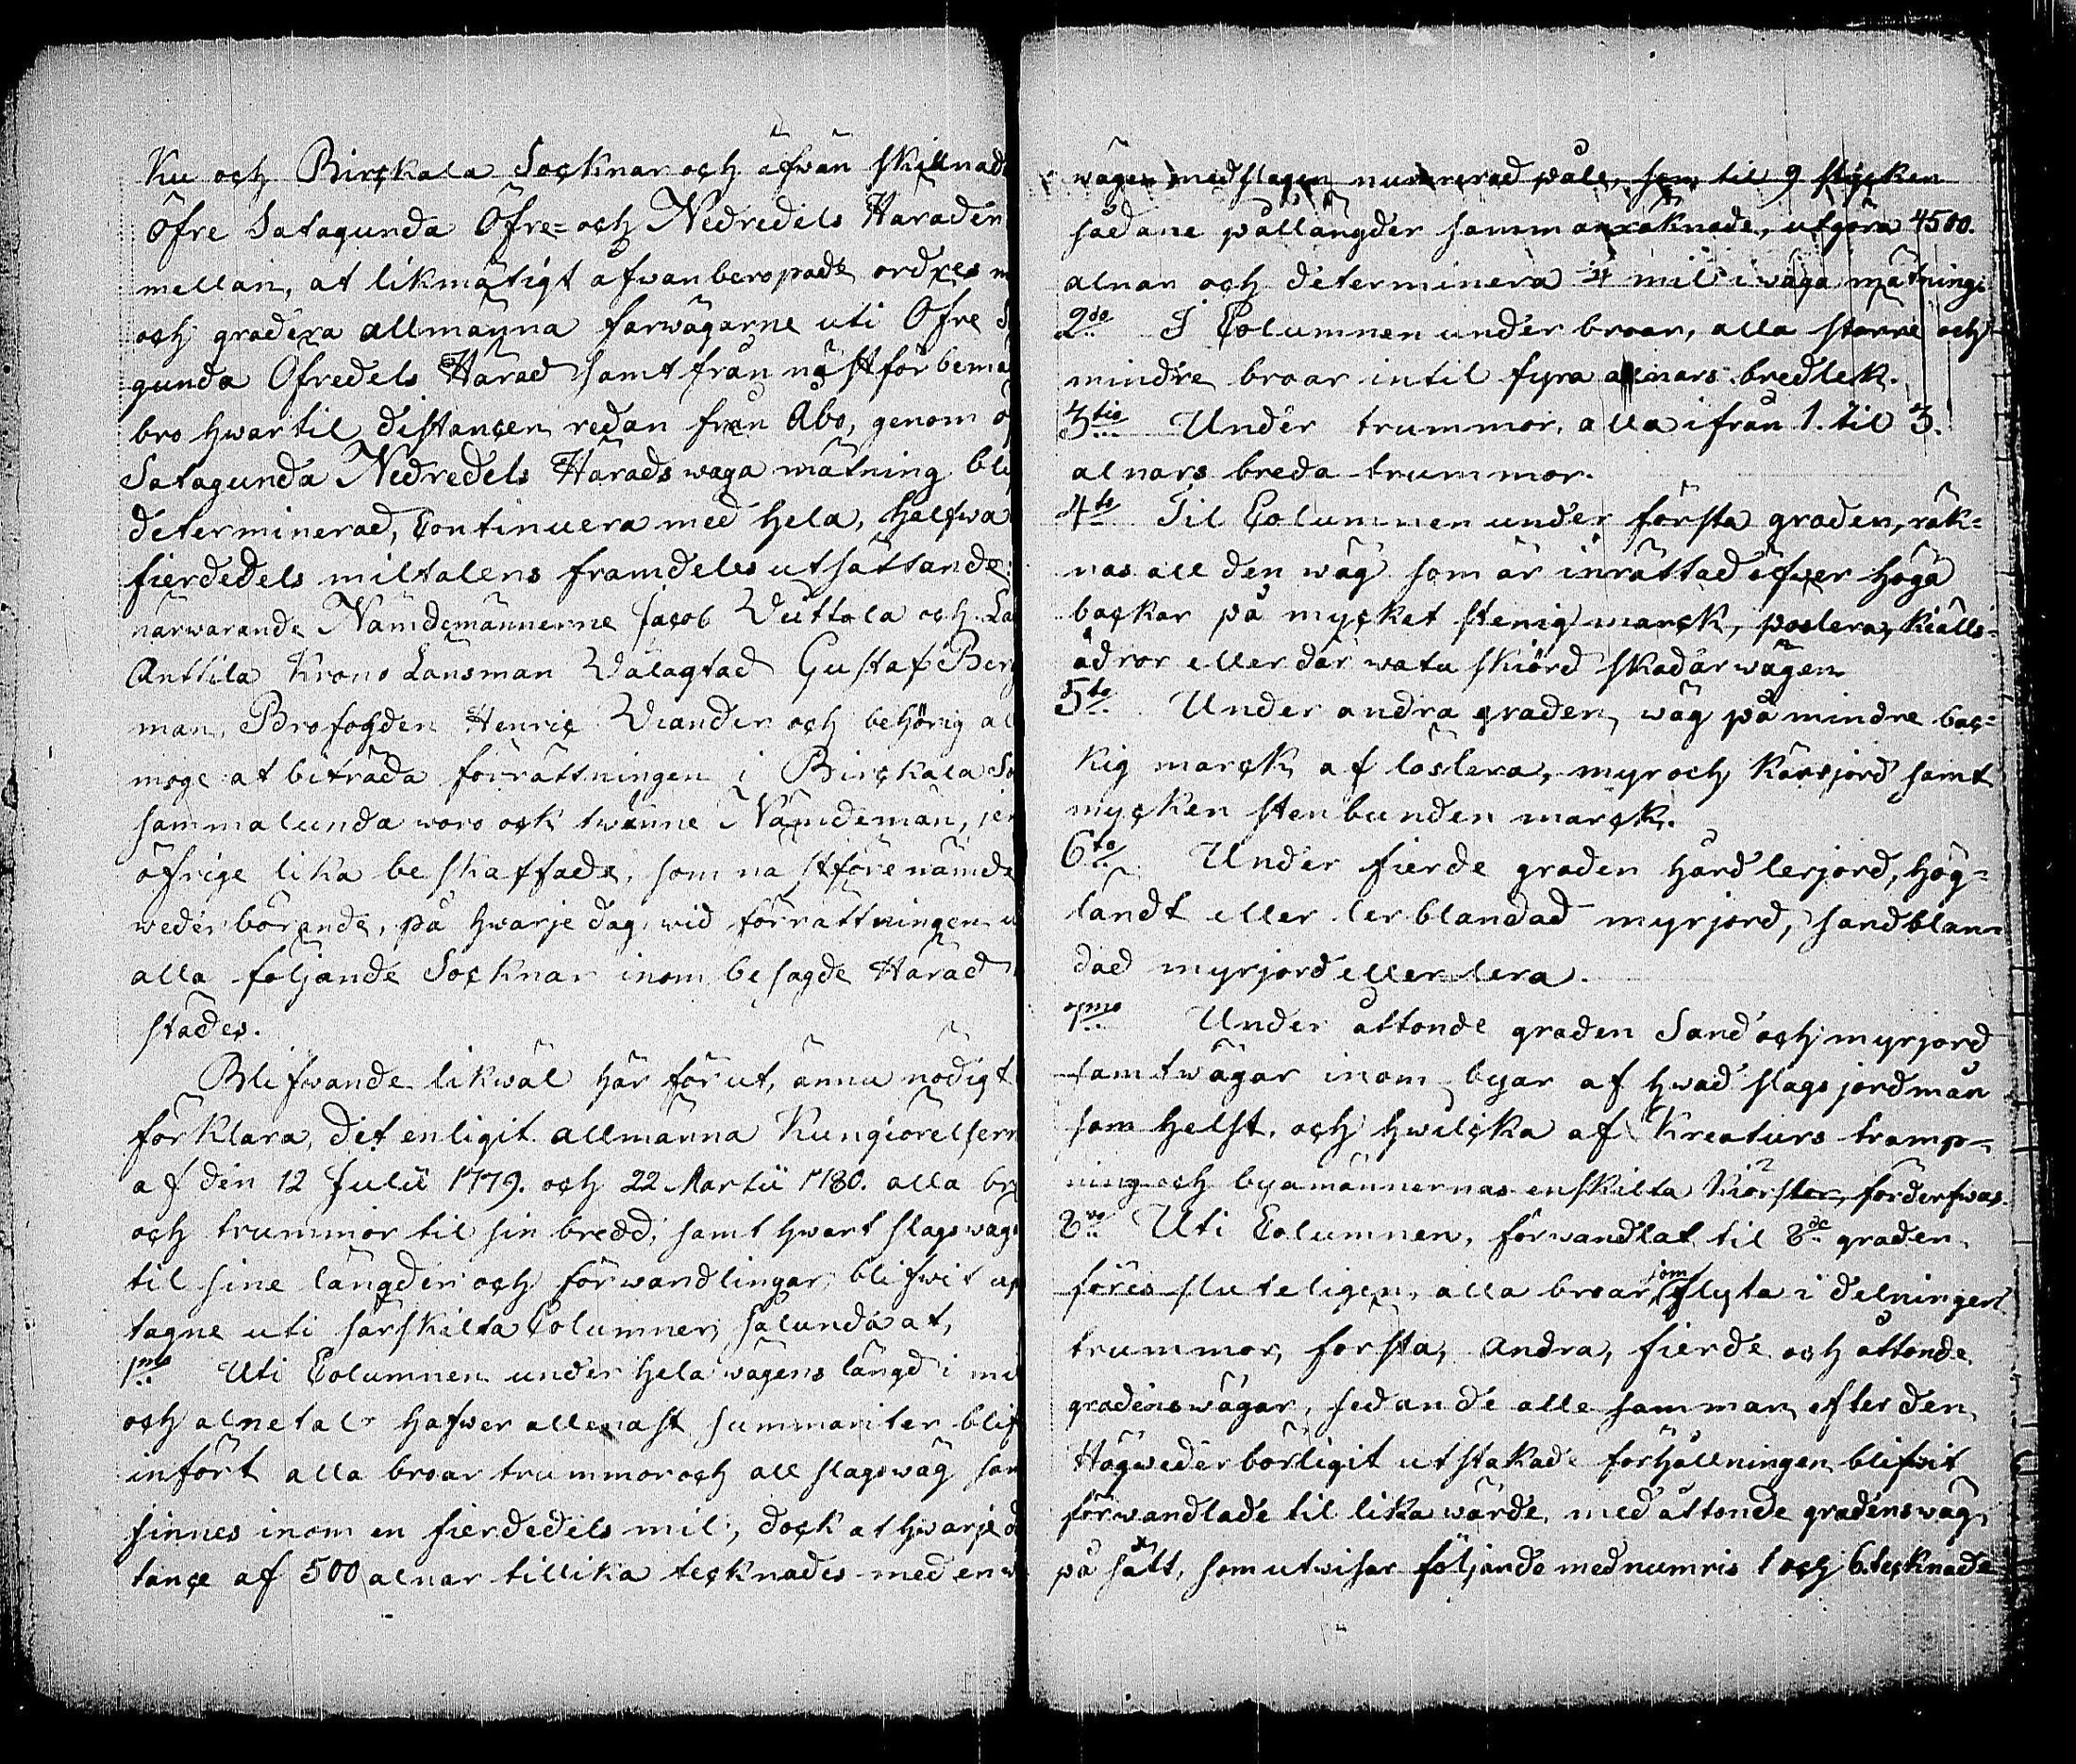 Ku och Birckala Socknar och äfwän skillnad
Öfre Satagunda Öfre= och Nedredels Härader
mellan, at likmätigt åfwanberopade ordres
och gradera allmänna farwägarne uti Öfre
gunda Öfredels Härad samt från nästförbemä
bro hwartil distancen redan från Åbo, genom
Satagunda Nedredels Härads wäga mätning bli
determinerad, Continuera med hela, helfwa
fierdedels miltalens framdeles utsättande:
närwarande Nämdemännerne Jacob Wuttola och La
Anttila Krono Länsman Wälagtad Gustaf Berg
man, Brofogden Henric Wiander och behörig al
moge at biträda förrättningen i Birckala So
sammalunda woro ock twänne Nämdemän,
öfrige lika beskaffade, som nästförenämde
wederbörande, på hwarje dag, wid förrättningen
alla följande Socknar inom besagde Härad
städes.
Blifwande likwäl här förut, ännu nödigt
förklara, det enligit allmänna Kungiörelserne
af den 12 Julii 1779. och 22 Martii 1780. alla bro
och trummor til sin bredd, samt hwart slags wäg
til sine längder och förwandlingar blifwit up
tagne uti särskilta Columner, sålunda at,
1mo Uti Columnen under hela wägens längd i mil
och alnetal hafwer allenast summariter blif
infört alla broar trummor och all slags wäg som
finnes inom en fierdedels mil, dock at hwarje di
tance af 500 alnar tillika tecknades med en w
wägen nedslagen numrerad påle, som til 9 stycken
sådane pållängder sammanräknade, utgöra 4500.
alnar och determinera ¼ mil i wäga mätning
2do I Columnen under broar, alla större och
mindre broar intil fyra alnars bredlek.
3tio Under trummor, alla ifrån 1. til 3.
alnars breda trummor.
4to Til Columnen under första graden, räk=
nas all den wäg som är inrättad öfwer höga
backar på mycket stenig marck, poslera, kiälls=
ådror eller där watu skiörd skadar wägen.
5to Under andra graden, wäg på mindre bac=
kig marck af löslera, myr och kärrjord samt
mycken stenbunden marck.
6to Under fierde graden hård lerjord, hög=
ländt eller lerblandad myrjord, sandblan=
dad myrjord eller lera.
7mo Under åttonde graden Sand och myrjord
samt wägar inom byar af hwad slags jordmån
som helst, och hwilcka af Kreaturs tramp=
ning och byamännernas enskilta kiörslar, förderfwas.
8vo Uti Columnen, förwandlat til 8de graden
föres sluteligen, alla broar som flyta i delningen
trummor, första, andra, fierde och åttonde
gradens wägar, sedan de alle samman efter den
Högwederbörligit utstakade förhållningen blifwit
förwandlade til lika wärde, med åttonde gradens wäg,
på sätt, som utwisar följande med numris 1 och 6. tecknade